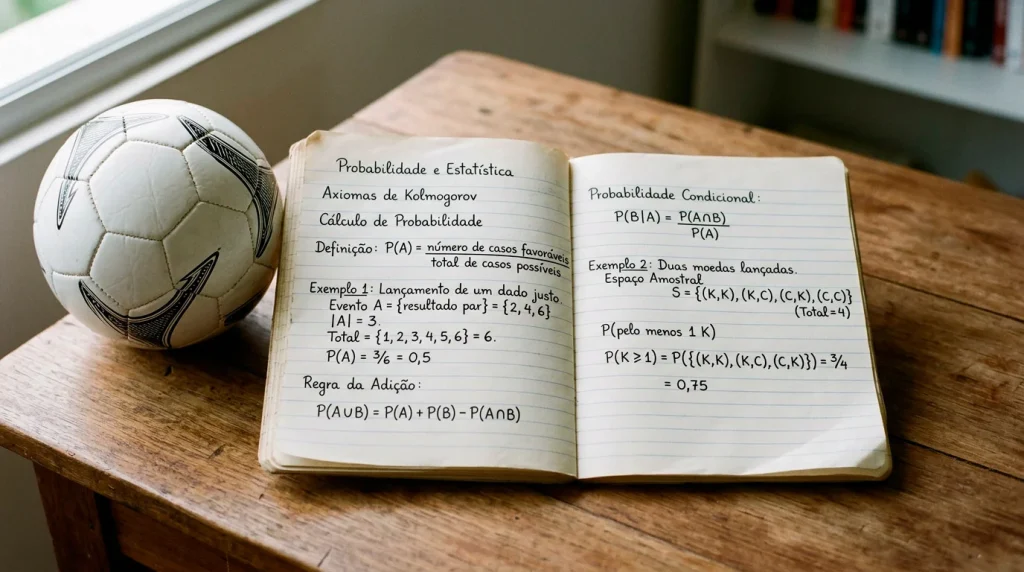 Probabilidade e Estatística
Axiomas de Kolmogorov
Cálculo de Probabilidade
Definição: P(A) = número de casos favoráveis / total de casos possíveis
Exemplo 1: Lançamento de um dado justo.
Evento A = {resultado par} = {2, 4, 6}
|A| = 3.
Total = {1, 2, 3, 4, 5, 6} = 6.
P(A) = 3/6 = 0,5
Regra da Adição:
P(A∪B) = P(A) + P(B) - P(A∩B)
Probabilidade Condicional:
P(B|A) = P(A∩B) / P(A)
Exemplo 2: Duas moedas lançadas.
Espaço Amostral
S = {(K,K), (K,C), (C,K), (C,C)}
(Total=4)
P(pelo menos 1 K)
P(K ≥ 1) = P({(K,K), (K,C), (C,K)}) = 3/4
= 0,75